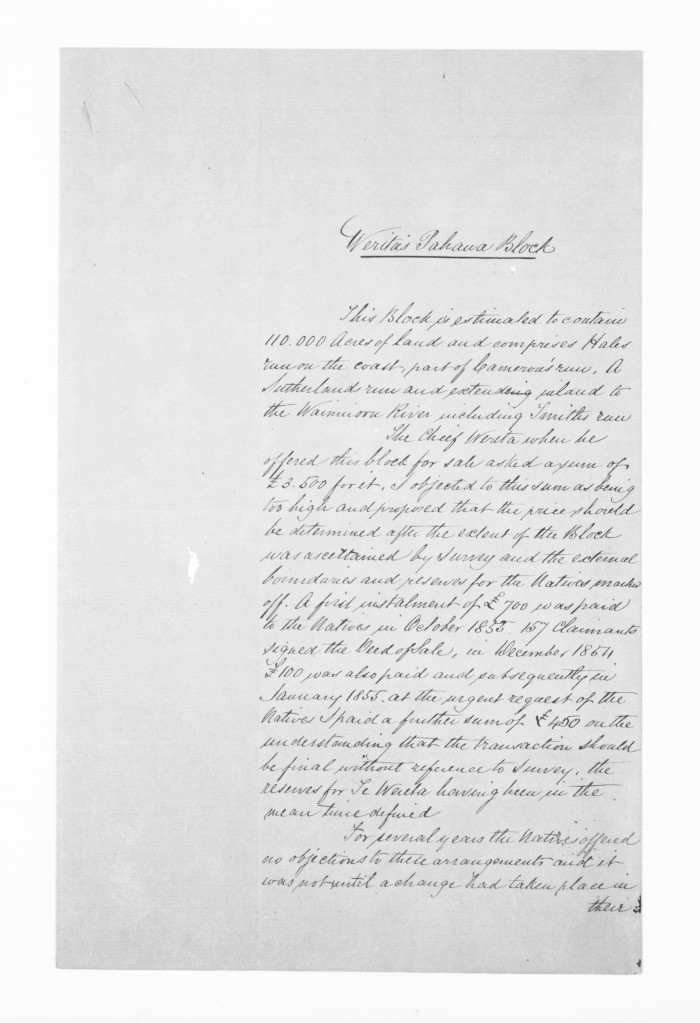 Werita's Pahaua Block
This Block is estimated to contain
110.000 Acres of Land and comprises Hales
run on the coast, part of Cameron's run, A
Sutherlands run and extending inland to
the Waimuoru River including Smiths run
The Chief Wereta when he
offered this block for sale asked a sum of
£3.500 for it. I objected to this sum as being
too high and proposed that the price should
be determined after the extent of the Block
was ascertained by Survey and the external
boundaries and reserves for the Natives marked
off. A first instalment of £700 was paid
to the Natives in October 1853. 157 Claimants
signed the Deed of Sale, in December 1854
£100 was also paid and subsequently in
January 1855. at the urgent request of the
Natives I paid a further sum of £450 on the
understanding that the transaction should
be final without reference to Survey, the
reserves for Te Wereta having been in the
mean time defined
For several years the Natives offered
no objections to these arrangements and it
was not until a change had taken place in
their